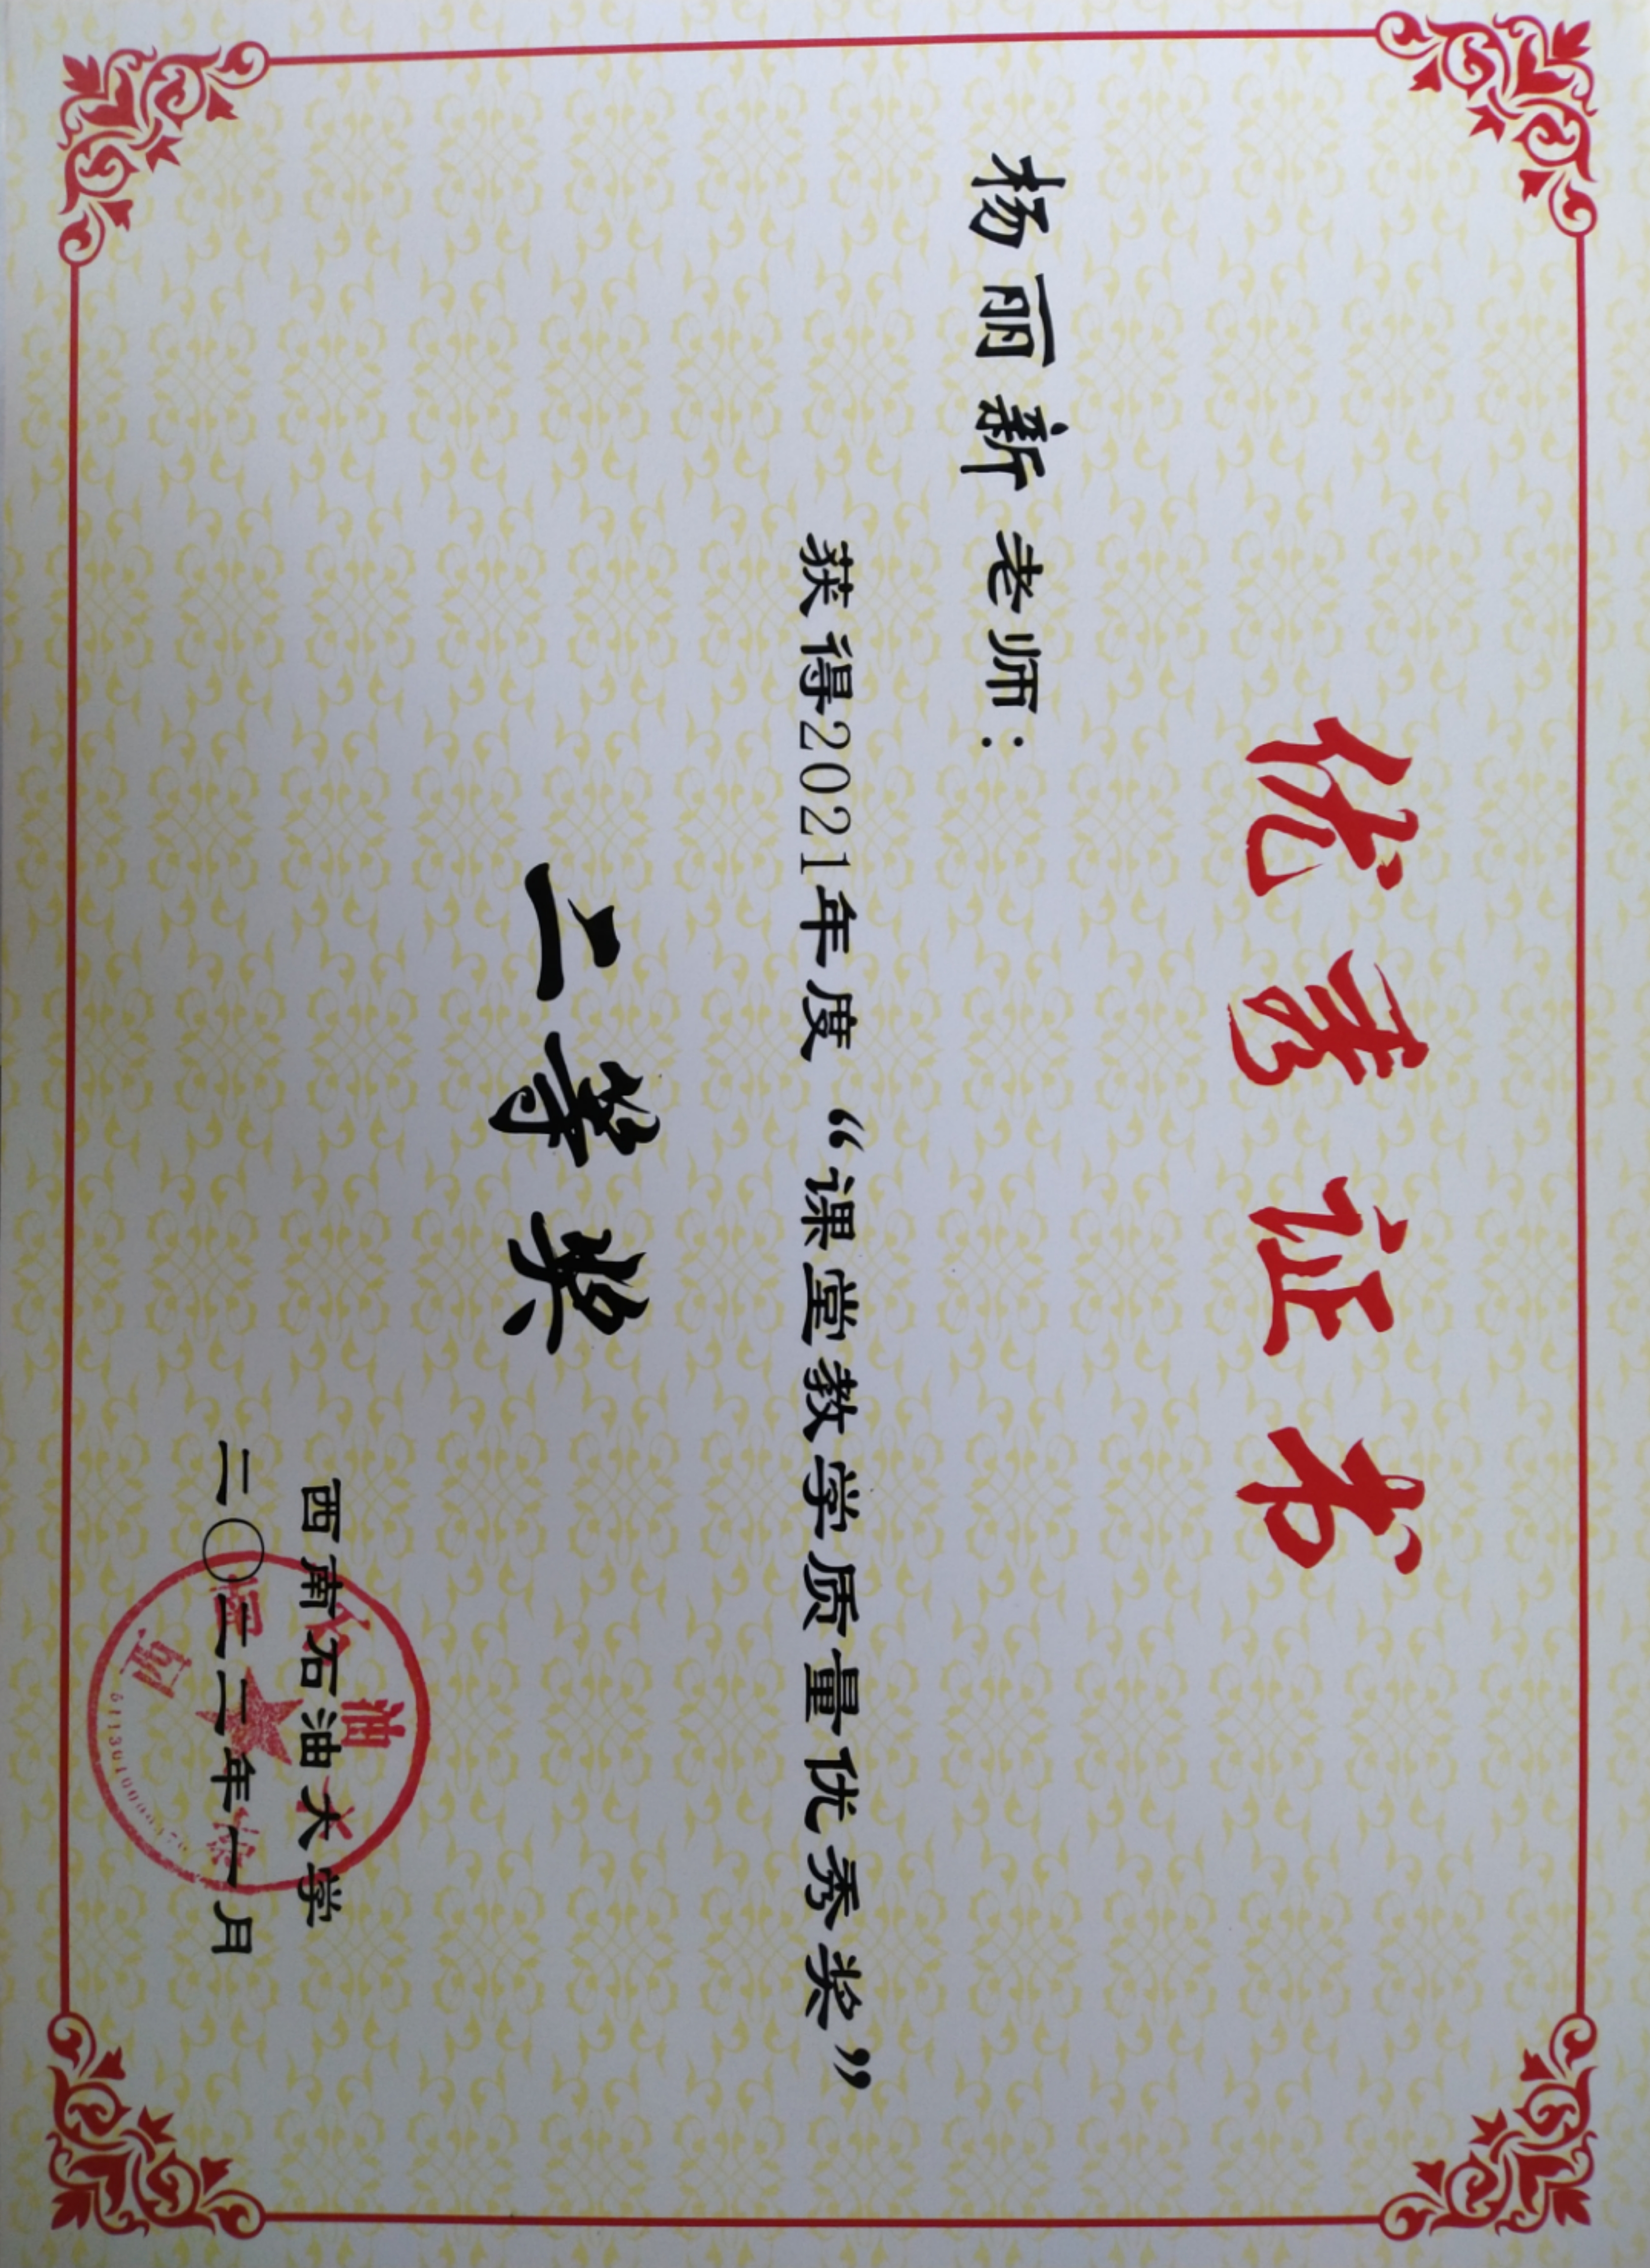 优秀证书
杨丽新老师：
获得2021年度“课堂教学质量优秀奖”
二等奖
西南石油大学
二〇二二年一月